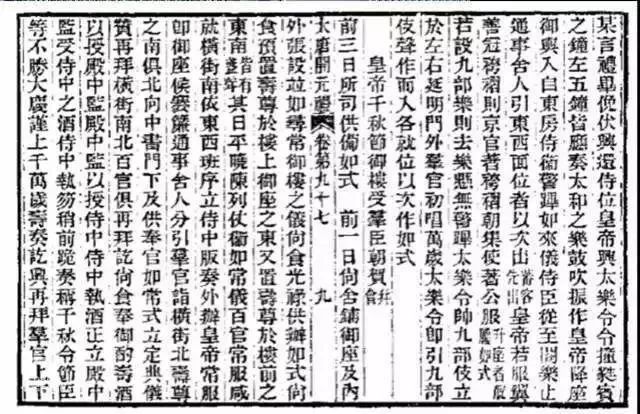 某言禮畢俛伏興還侍位皇帝興太樂令令撞蕤賓
之鐘左五鐘皆應奏太和之樂鼓吹振作皇帝降座
御輿入自東房侍衞警蹕如來儀侍臣從至閤樂止
通事舍人引東西面位者以次出蕃客先出皇帝若服翼
善冠袴褶則京官著袴褶朝集使著公服升座者服履如式
若設九部樂則去樂懸無警蹕太樂令帥九部伎立
於左右延明門外羣官初唱萬歲太樂令卽引九部
伎聲作而入各就位以次作如式
皇帝千秋節御樓受羣臣朝賀并會
前三日所司供備如式 前一日尙舍鋪御座及內
大唐開元禮 卷第九十七 九
外張設並如尋常御樓之儀尙食光祿供辦如式尙
食預置壽尊於樓上御座之東又置壽尊於樓前之
東南皆有其日平曉陳列仗衞如常儀百官常服咸
就橫街南依東西班序立侍中版奏外辦皇帝常服
卽御座侯褰簾通事舍人分引羣官詣橫街北壽尊
之南俱北向中書門下及供奉官如常式立定典儀
贊再拜橫街南北百官俱再拜訖尙食奉御酌壽酒
以授殿中監殿中監以授侍中侍中執酒正立殿中
監受侍中之酒侍中執笏稍前跪奏稱千秋令節臣
等不勝大慶謹上千萬歲壽奏訖興再拜羣官上下